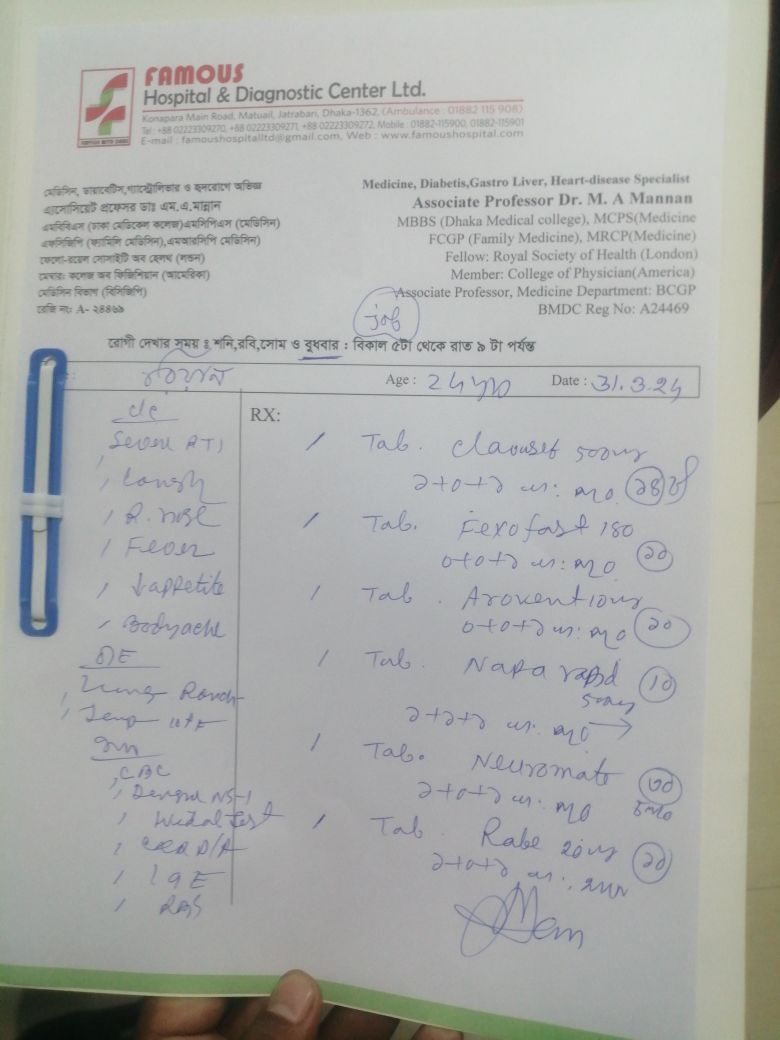 FAMOUS
Hospital & Diagnostic Center Ltd.
Konapara Main Road, Matuail, Jatrabari, Dhaka-1362, (Ambulance : 01882 115 908)
Tel : +88 02223309270, +88 02223309271, +88 02223309272, Mobile : 01882-115900, 01882-115901
E-mail : famoushospitalltd@gmail.com, Web : www.famoushospital.com
মেডিসিন, ডায়াবেটিস,গ্যাস্ট্রোলিভার ও হৃদরোগে অভিজ্ঞ
এ্যাসোসিয়েট প্রফেসর ডাঃ এম.এ.মান্নান
এমবিবিএস (ঢাকা মেডিকেল কলেজ)এমসিপিএস (মেডিসিন)
এফসিজিপি (ফ্যামিলি মেডিসিন),এমআরসিপি (মেডিসিন)
ফেলো-রয়েল সোসাইটি অব হেলথ (লন্ডন)
মেম্বার: কলেজ অব ফিজিশিয়ান (আমেরিকা)
মেডিসিন বিভাগ (বিসিজিপি)
রেজি নং: A- ২৪৪৬৯
Medicine, Diabetis,Gastro Liver, Heart-disease Specialist
Associate Professor Dr. M. A Mannan
MBBS (Dhaka Medical college), MCPS(Medicine
FCGP (Family Medicine), MRCP(Medicine)
Fellow: Royal Society of Health (London)
Member: College of Physician(America)
Associate Professor, Medicine Department: BCGP
BMDC Reg No: A24469
Job
রোগী দেখার সময় ঃ শনি,রবি,সোম ও বুধবার : বিকাল ৫টা থেকে রাত ৯ টা পর্যন্ত
Age : 24
Date : 31.3.24
C/C
Severe RTI
Cough
R. nose
Fever
↓appetite
Bodyache
O/E
Lung
Temp
CBC
Dengue NS-1
Widal test
CXR P/A
IgE
RBS
RX:
Tab. Clavusef 500mg
১+০+১ ১৪
Tab. Fexofast 180
০+০+১ ২০
Tab. Arovent 10mg
০+০+১ ২০
Tab. Napa rapid 500mg 10
১+১+১
Tab. Neuromate ৩০
১+০+১
Tab. Rabe 20mg ২০
১+০+১